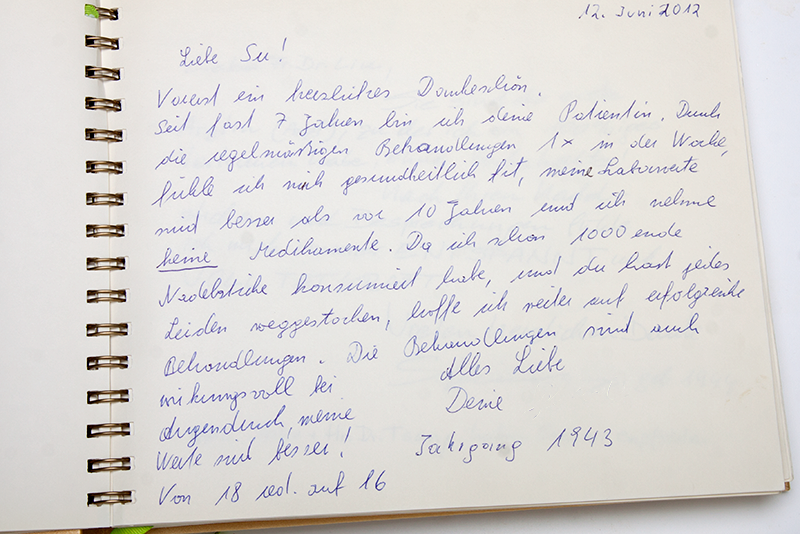 12. Juni 2012
Liebe Su!
Vorerst ein herzliches Dankeschön.
Seit fast 7 Jahren bin ich deine Patientin. Durch
die regelmäßigen Behandlungen 1x in der Woche,
fühle ich mich gesundheitlich fit, meine Laborwerte
sind besser als vor 10 Jahren und ich nehme
keine Medikamente. Da ich schon 1000 ende
Nadelstiche konsumiert habe, und du hast jedes
Leiden weggestochen, hoffe ich weiter auf erfolgreiche
Behandlungen. Die Behandlungen sind auch
wirkungsvoll bei
Augendruck, meine
Werte sind besser!
Von 18 red. auf 16
Alles Liebe
Deine
Jahrgang 1943